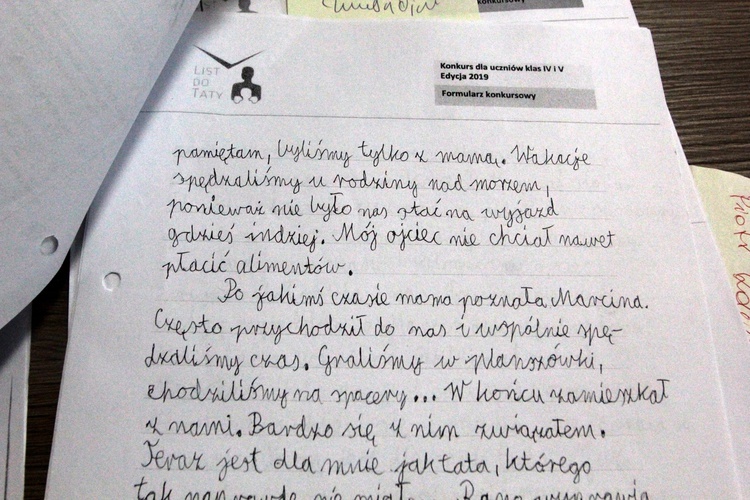 konkursowy
LIST
DO
TATY
Konkurs dla uczniów klas IV i V
Edycja 2019
Formularz konkursowy
pamiętam, byliśmy tylko z mamą. Wakacje
spędzaliśmy u rodziny nad morzem,
ponieważ nie było nas stać na wyjazd
gdzieś indziej. Mój ojciec nie chciał nawet
płacić alimentów.
Po jakimś czasie mama poznała Marcina.
Często przychodził do nas i wspólnie spę-
dzaliśmy czas. Graliśmy w planszówki,
chodziliśmy na spacery... W końcu zamieszkał
z nami. Bardzo się z nim związałem.
Teraz jest dla mnie jak tata, którego
tak naprawdę nie